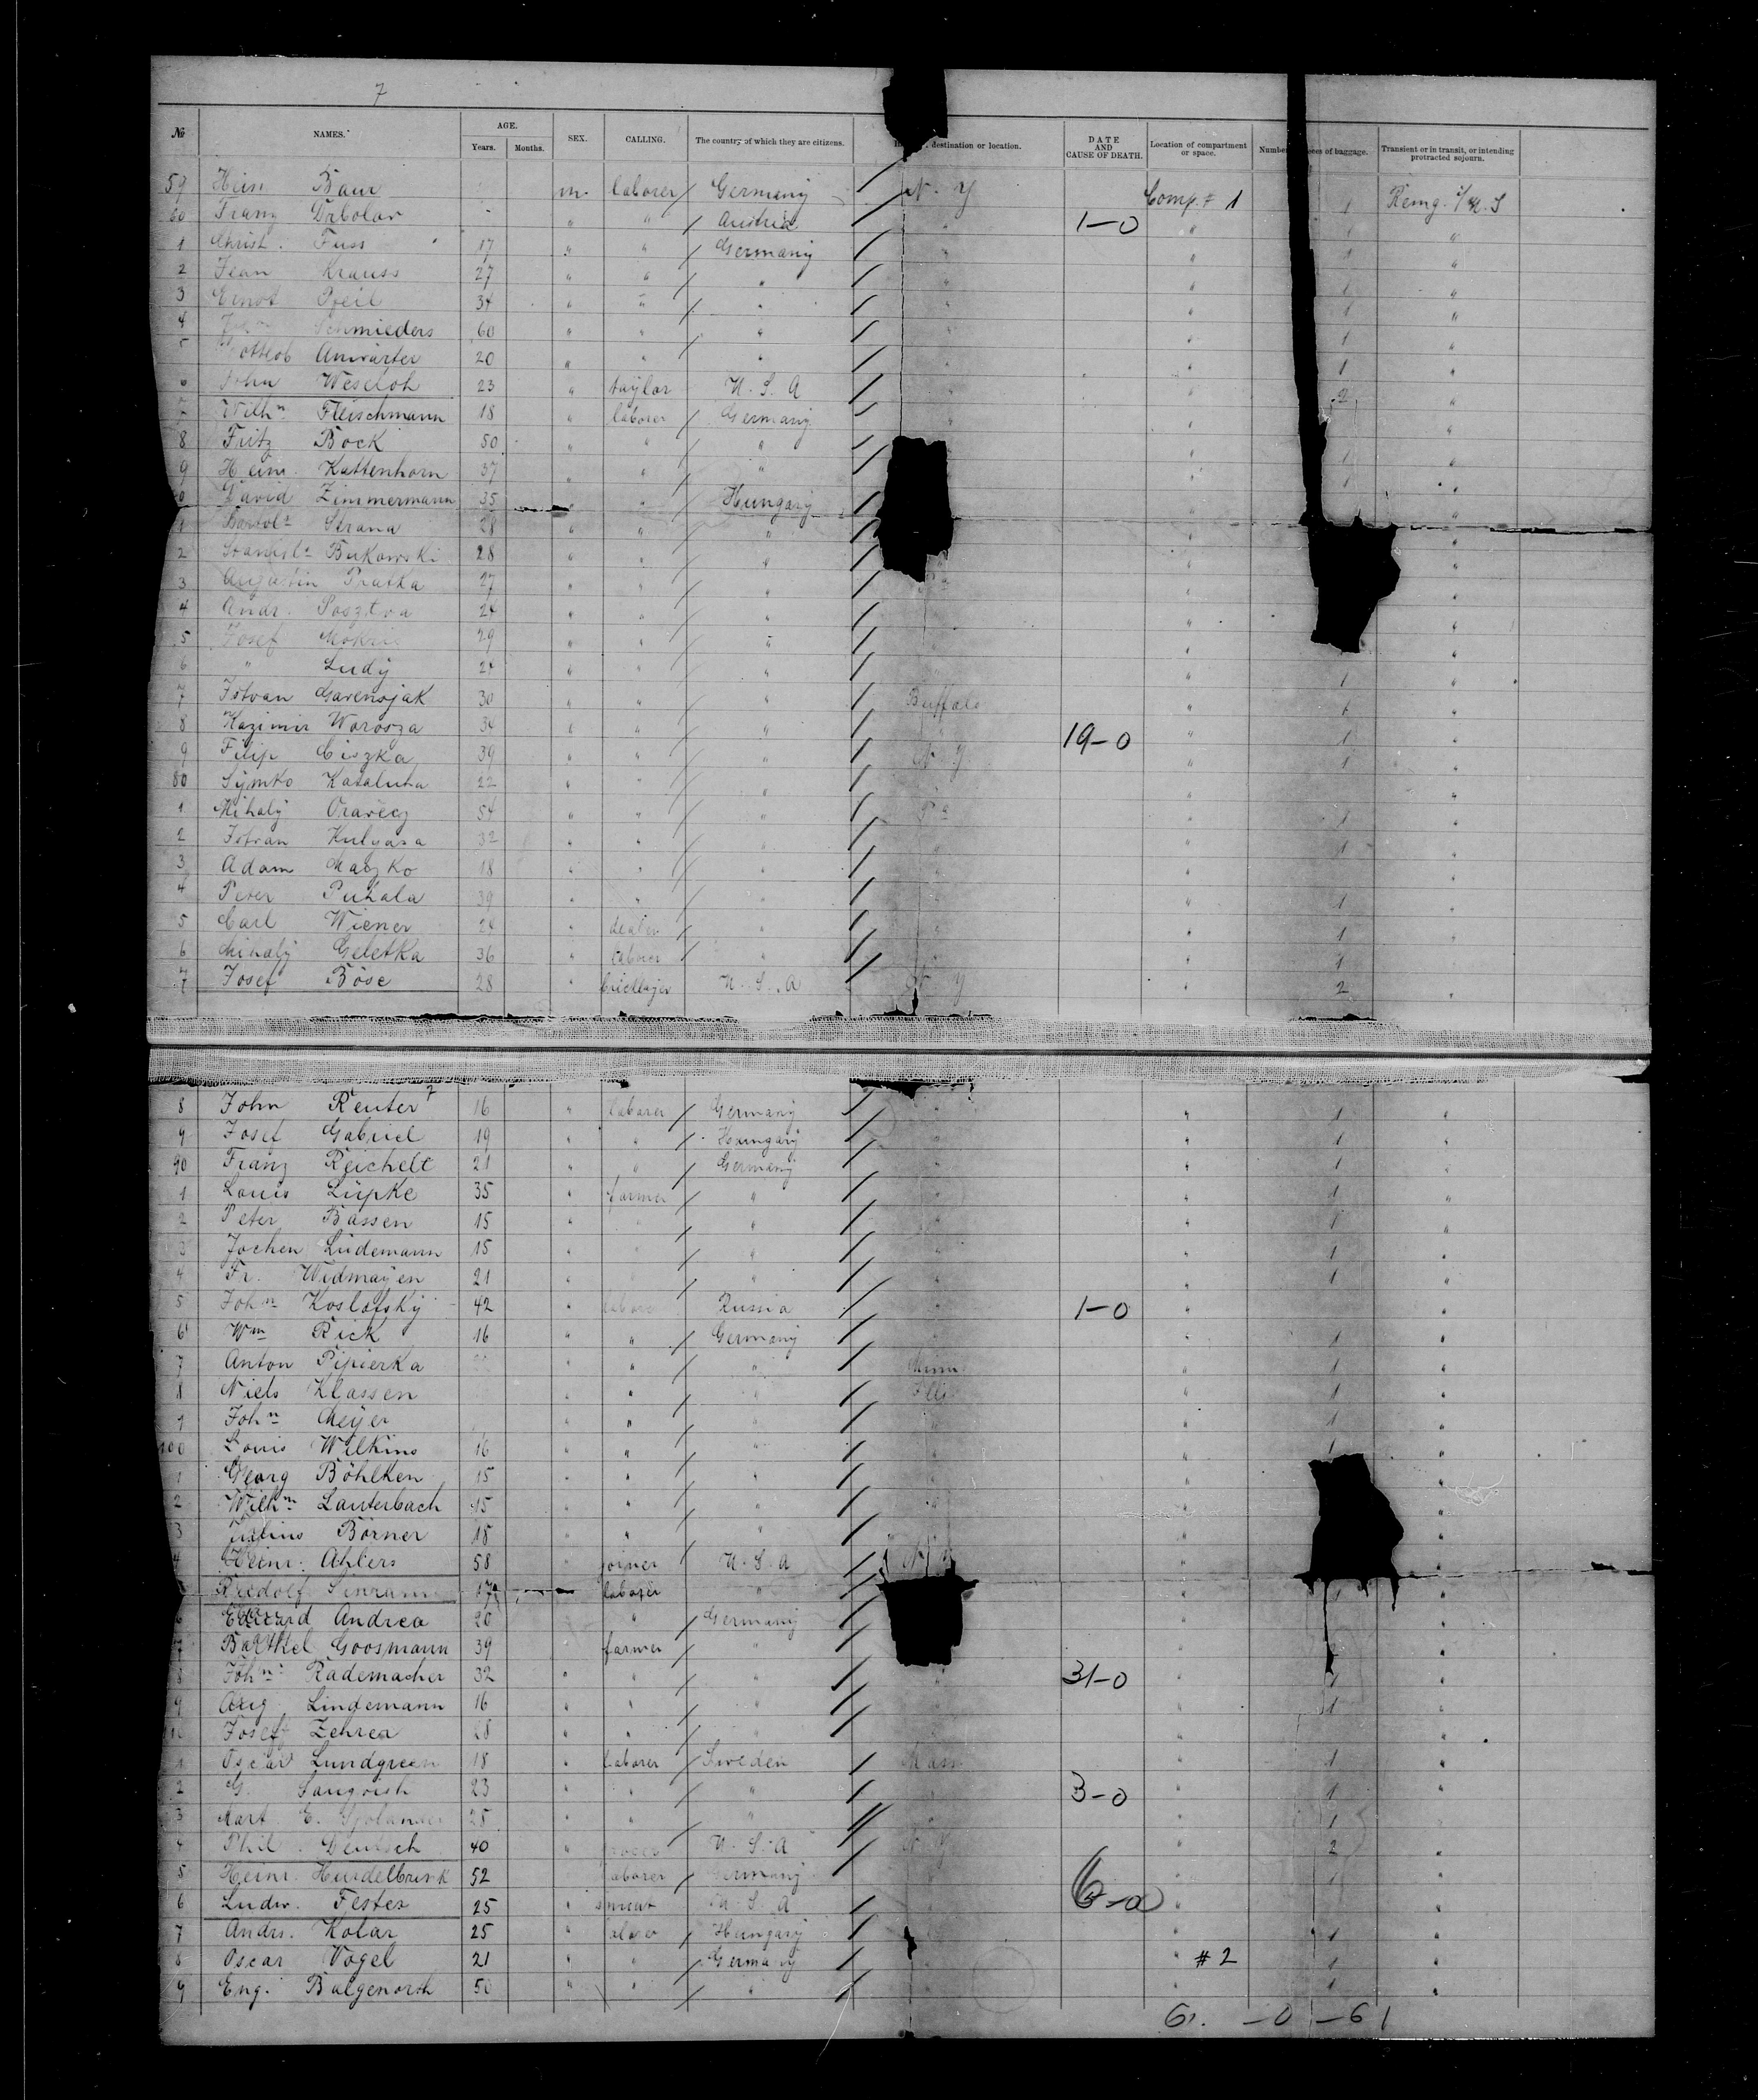 7
No NAMES. AGE. Years. Months. SEX. CALLING. The country of which they are citizens. destination or location. DATE AND CAUSE OF DEATH. Location of compartment or space. Number of baggage. Transient or in transit, or intending protracted sojourn.
59 Baur m. laborer Germany N. Y Comp. # 1 1
60 Franz Drbolar " " Austria " 1-0 " 1 "
1 Christ. Fuss 17 " " Germany " " 1 "
2 Jean Krauss 27 " " " " " 1 "
3 Ernst Pfeil 34 " " " " " 1 "
4 Schmieders 60 " " " " 1 "
5 Gottlob Anwärter 20 " " " " 1 "
6 John Weseloh 23 " taylor U. S. A " " 2 "
7 Wilhm Fleischmann 18 " laborer Germany " " "
8 Fritz Bock 50 " " " " 1 "
9 Heinr. Kattenhorn 37 " " " " 1 "
70 David Zimmermann 35 " " Hungary " "
1 Strana 28 " " " " "
2 Stanisls Bukowski 28 " " " " "
3 Augustin Pratka 27 " " " " "
4 Andr. Posztva 24 " " " " "
5 Josef Mokri 29 " " " " "
6 " Ludy 24 " " " " 1 "
7 Istvan Gavensjak 30 " " " Buffalo " 1 "
8 Kazimir Worosza 30 " " " " 19-0 " 1 "
9 Filip Ciszka 39 " " " N. Y " 1 "
80 Symko Kataluha 22 " " " " "
1 Mihaly Oravecz 54 " " " Pa 1 "
2 Istvan Kulyasa 32 " " " " " 1 "
3 Adam Maczko 18 " " " " " "
4 Peter Puhala 39 " " " " 1 "
5 Carl Wiener 24 " dealer " " " 1 "
6 Mihaly Geletka 36 " laborer " " " 1
7 Josef Böse 28 " bricklayer U. S. A N. Y " 2 "
7
8 John Reuter 16 " laborer Germany " " 1 "
9 Josef Gabriel 19 " " Hungary " " 1 "
90 Franz Reichelt 21 " " Germany " " 1 "
1 Louis Lüpke 35 " farmer " " " 1 "
2 Peter Bassen 15 " " " " " 1 "
3 Jochen Lüdemann 15 " " " " " 1 "
4 Fr. Widmayen 21 " " " " " 1 "
5 Johnn Koslofsky 42 " labore Russia " 1-0 " "
6 Wm Rick 16 " " Germany " " 1 "
7 Anton Pipierka " " " Minn " 1 "
8 Niels Klassen " " " Ills " 1 "
9 Johnn Meyer " " " " " 1 "
100 Louis Wilkins 16 " " " " " 1 "
1 Georg Böhlken 15 " " " " " "
2 Wilhm Lauterbach 15 " " " " " "
3 Julius Börner 18 " " " " "
4 Heinr. Ahlers 58 " joiner U. S. A N. Y " "
Rudolf Sinram 17 laborer " " 1 "
6 Eduard Andrea 20 " Germany " "
7 Barthel Goosmann 39 farmer " " "
8 Johnn Rademacher 32 " " " " 31-0 " 1 "
9 Aug. Lindemann 16 " " " " 1 "
10 Josef Zehrer 28 " " " " "
1 Oscar Lundgreen 18 " laborer Sweden Mass " 1 "
2 G. 23 " " " 3-0 " 1 "
3 E. 25 " " " " 1 "
4 Phil. Deutsch 40 " U. S. A N. Y " 2 "
5 Heinr. Heidelbrink 52 laborer Germany 1 "
6 Ludw. Fester 25 " U. S. A 6-0 " "
7 Andr. Kolar 25 " laborer Hungary " 1 "
8 Oscar Vogel 21 " " Germany " " # 2 1 "
9 Eng. Balgenorth 50 " " " " " 1 "
61. -0 -61